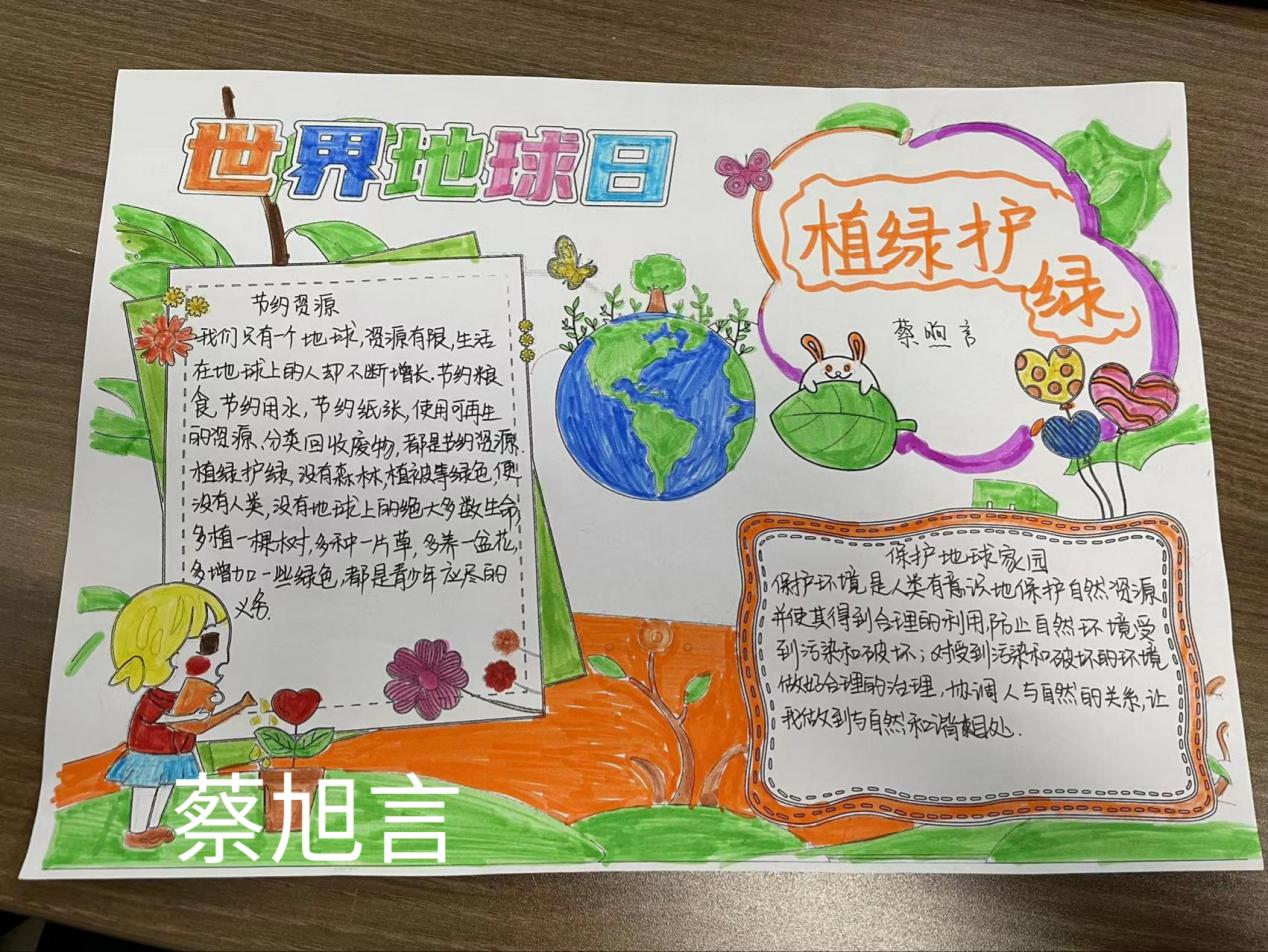 世界地球日
节约资源
我们只有一个地球,资源有限,生活
在地球上的人却不断增长.节约粮
食,节约用水,节约纸张,使用可再生
的资源、分类回收废物,都是节约资源.
植绿护绿,没有森林,植被等绿色,便
没有人类,没有地球上的绝大多数生命,
多植一棵树,多种一片草,多养一盆花,
多增加一些绿色,都是青少年应尽的
义务.
植绿护
绿
蔡煦言
保护地球家园
保护环境是人类有意识地保护自然资源
并使其得到合理的利用防止自然环境受
到污染和破坏;对受到污染和破坏的环境
做好合理的治理,协调人与自然的关系,让
我做到与自然和谐相处.
蔡旭言